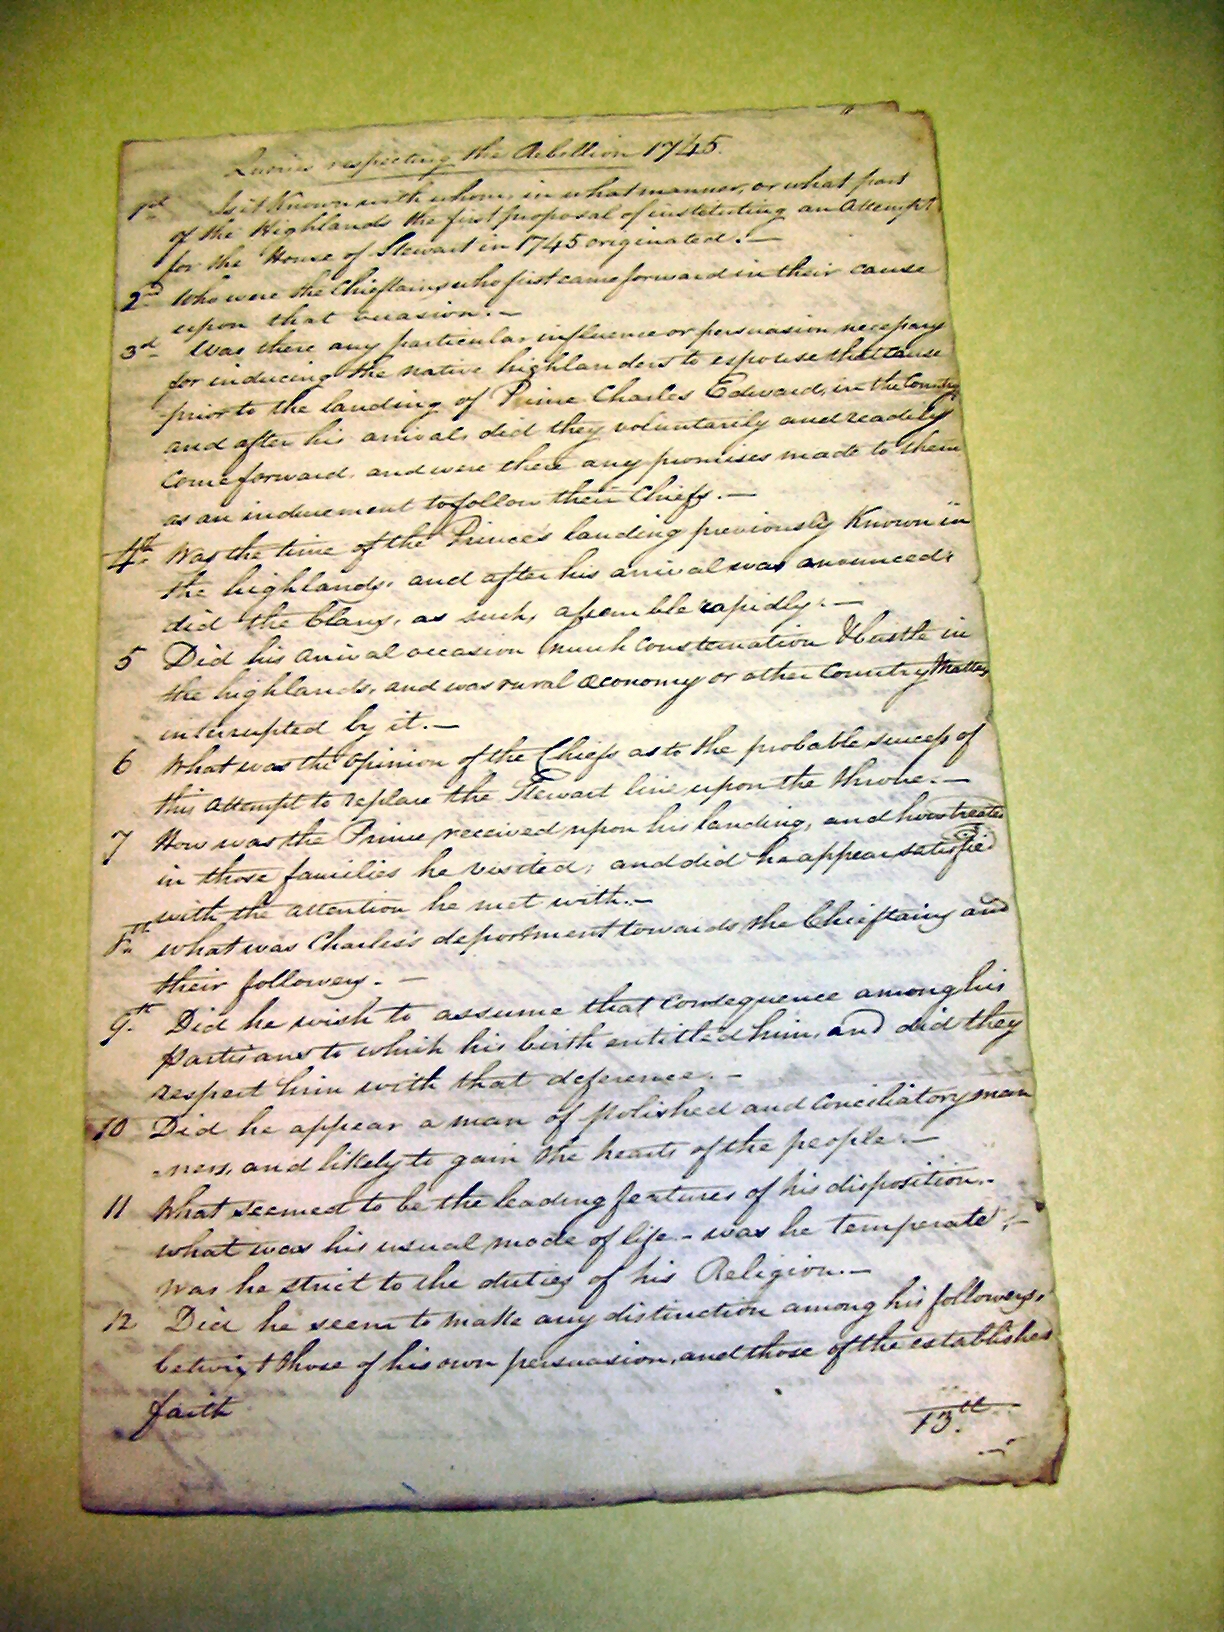 Queries respecting the Rebellion 1745.
1st Is it Known with whom, in what manner, or what part
of the Highlands the first proposal of instituting an Attempt
for the House of Stewart in 1745 originated.—
2nd Who were the Chieftains who first came forward in their cause
upon that occasion.—
3d Was there any particular influence or persuasion necessary
for inducing the native highlanders to espouse that cause
prior to the landing of Prince Charles Edward, in the Country
and after his arrival, did they voluntarily and readily
Come forward. and were there any promises made to them
as an inducement to follow their Chiefs.—
4th Was the time of the Prince's landing previously Known in
the highlands, and after his arrival was anounced,
did the Clans, as such, assemble rapidly.—
5 Did his arival occasion much consternation & bustle in
the highlands, and was rural œconomy or other Country Matters
interrupted by it.—
6 What was the opinion of the Chiefs as to the probable success of
this Attempt to replace the Stewart line upon the throne.—
7 How was the Prince received upon his landing, and how treated
in those families he visited; and did he appear satisfied
with the attention he met with.—
8th what was Charles's deportment towards the Chieftains and
their followers.—
9th Did he wish to assume that consequence among his
partisans to which his birth entitled him, and did they
respect him with that deference.—
10 Did he appear a man of polished and conciliatory man
-ners, and likely to gain the hearts of the people.—
11 What seemed to be the leading features of his disposition.-
what was his usual mode of life - was he temperate,-
was he strict to the duties of his Religion.—
12 Did he seem to make any distinction among his followers,
betwixt those of his own persuasion, and those of the established
faith
13th